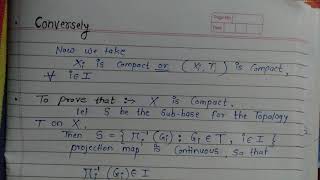 Page No.
Date
Conversely
Now we take
Xi is compact or (Xi, Ti) is compact,
∀ i ∈ I
• To prove that :→ X is compact.
Let S be the Sub-base for the Topology
T on X.
Then S = { Πi⁻¹ (Gi) : Gi ∈ T, i ∈ I }
projection map is continuous, so that
Πi⁻¹ (Gi) ∈ I